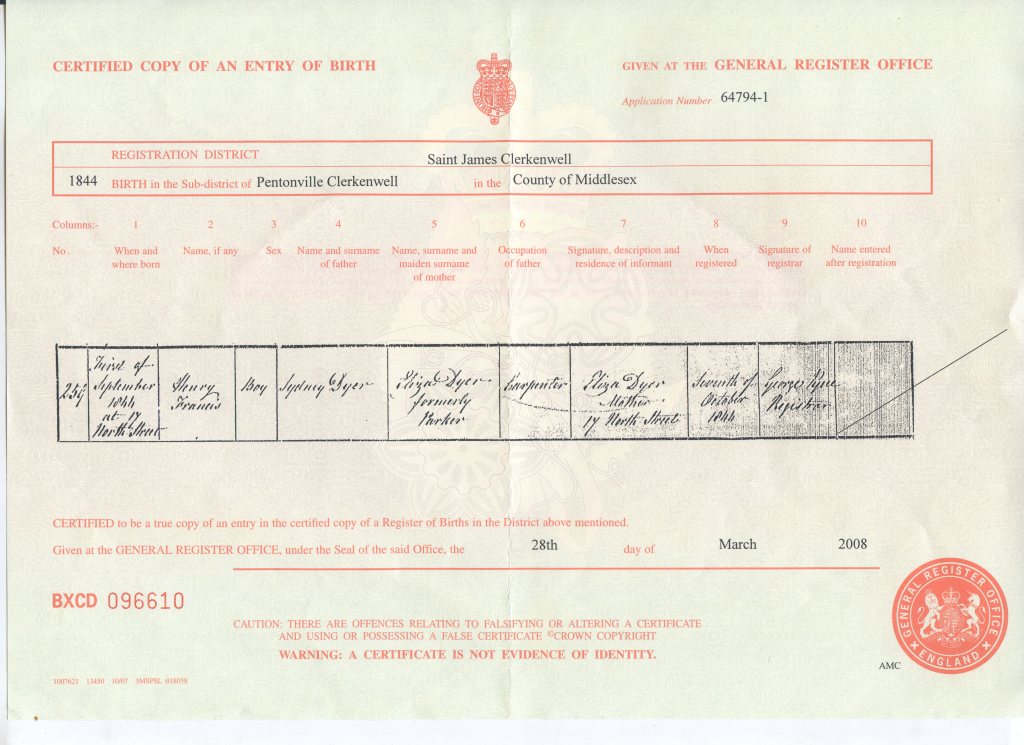 CERTIFIED COPY OF AN ENTRY OF BIRTH
GIVEN AT THE GENERAL REGISTER OFFICE
Application Number 64794-1
REGISTRATION DISTRICT Saint James Clerkenwell
1844 BIRTH in the Sub-district of Pentonville Clerkenwell in the County of Middlesex
Columns:- 1 2 3 4 5 6 7 8 9 10
No. When and Name, if any Sex Name and surname Name, surname and Occupation Signature, description and When Signature of Name entered
where born of father maiden surname of father residence of informant registered registrar after registration
of mother
259
First of
September
1844
at 17
North Street
Henry
Francis
Boy
Sydney Dyer
Eliza Dyer
formerly
Parker
Carpenter
Eliza Dyer
Mother
17 North Street
Seventh of
October
1844
George
Registrar
CERTIFIED to be a true copy of an entry in the certified copy of a Register of Births in the District above mentioned.
Given at the GENERAL REGISTER OFFICE, under the Seal of the said Office, the 28th day of March 2008
BXCD 096610
CAUTION: THERE ARE OFFENCES RELATING TO FALSIFYING OR ALTERING A CERTIFICATE
AND USING OR POSSESSING A FALSE CERTIFICATE ©CROWN COPYRIGHT
WARNING: A CERTIFICATE IS NOT EVIDENCE OF IDENTITY.
GENERAL REGISTER OFFICE
ENGLAND
AMC
1007621 13450 10/07 3MSPSL 018038